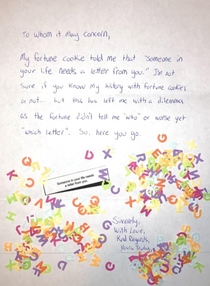 To Whom it May Concern,
My fortune cookie told me that "someone in
your life needs a letter from you." I'm not
sure if you know my history with fortune cookies
or not... but this has left me with a dilemma
as the fortune didn't tell me "who" or worse yet
"which letter". So, here you go.
Someone in your life needs
a letter from you.
Sincerely,
With Love,
Kind Regards,